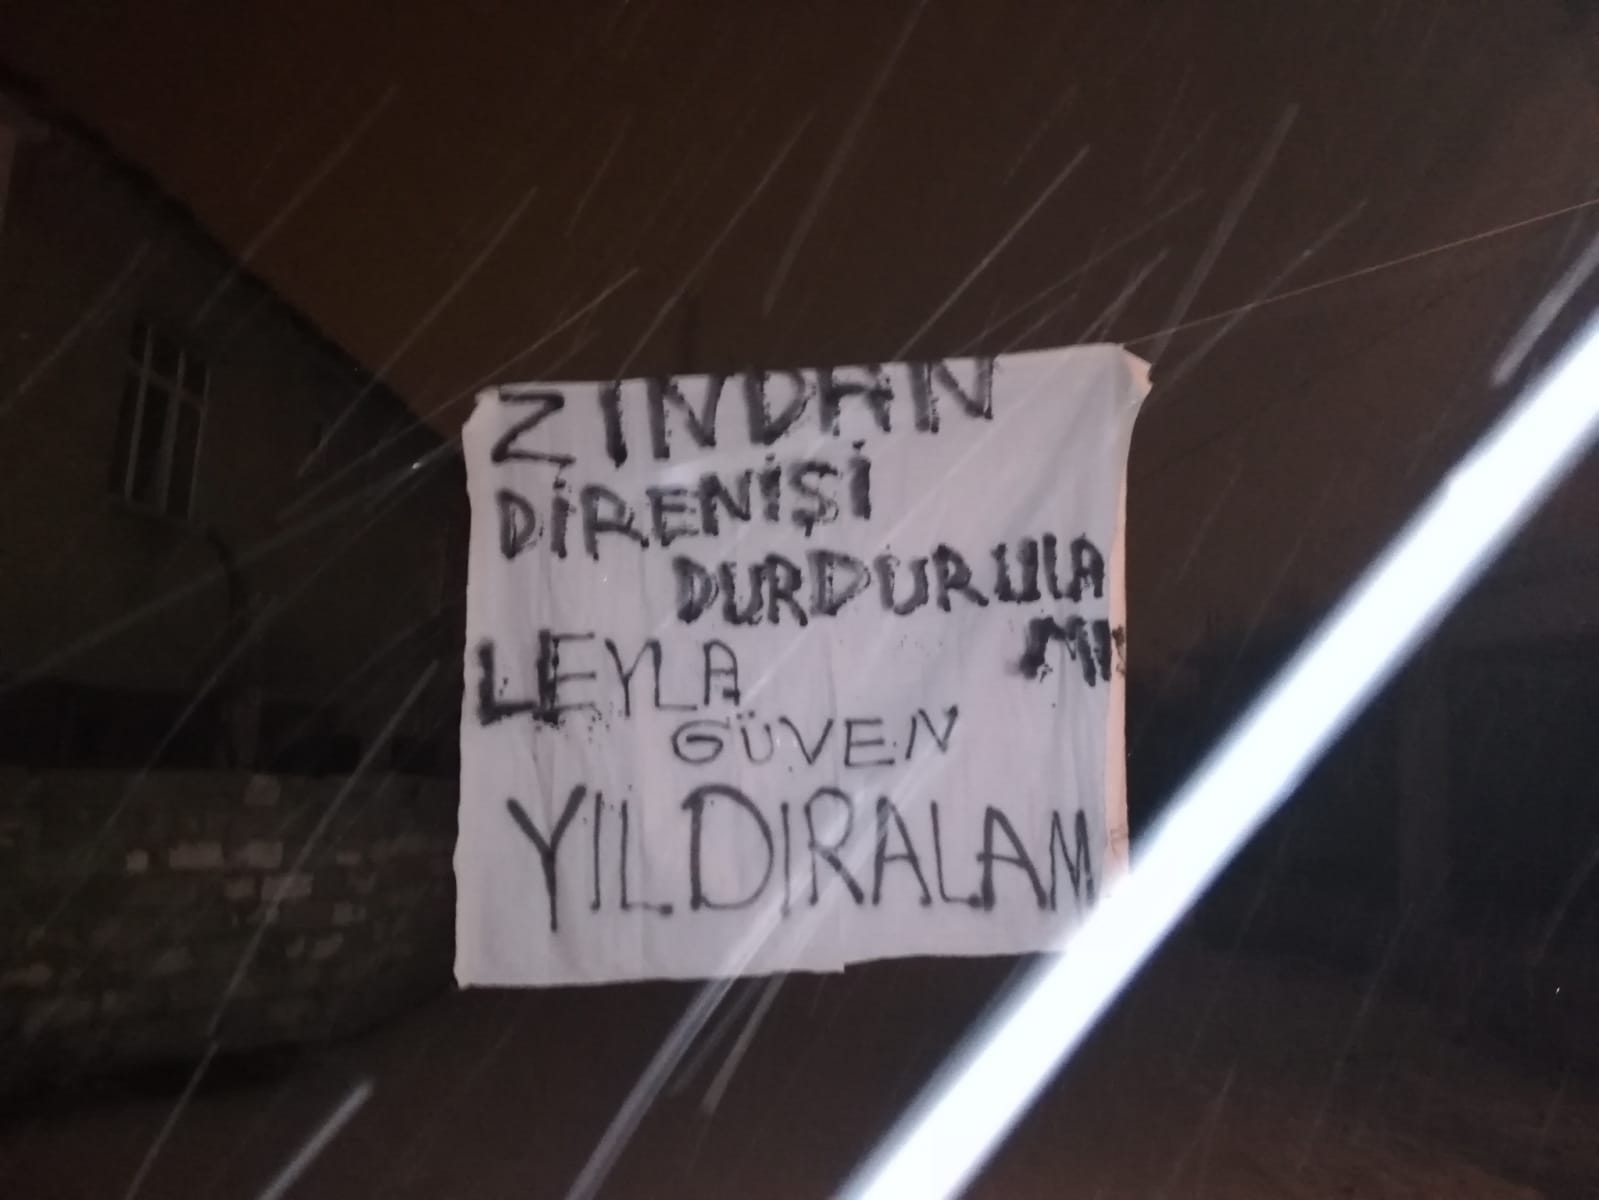 ZINDAN
DİRENİŞİ
DURDURULA
MI
LEYLA
GÜVEN
YILDIRALAM